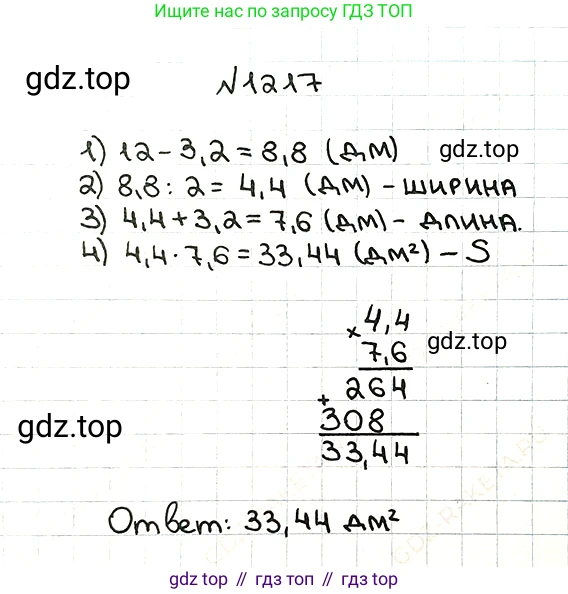 Ищите нас по запросу ГДЗ ТОП
gdz.top
№1217
1) 12 - 3,2 = 8,8 (дм)
gdz.top
2) 8,8 : 2 = 4,4 (дм) - ширина
3) 4,4 + 3,2 = 7,6 (дм) - длина.
4) 4,4 · 7,6 = 33,44 (дм²) - S
× 4,4
7,6
gdz.top
264
+
308
gdz.top
33,44
Ответ: 33,44 дм²
gdz top // гдз топ // gdz.top